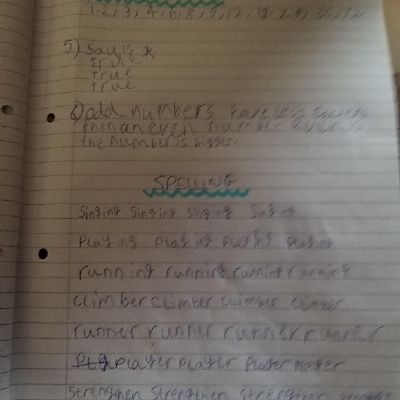 1, 2, 3, 4, 6, 8, 9, 12, 18, 24, 36, 72
5)
true
true
true
6) odd numbers have less
then an even number even is
the number is bigger.
SPELLING
Singing Singing singing Singing
Playing Playing Playing Playing
running running running running
climber climber climber climber
runner runner runner runner
Player Player Player Player
Strengthen Strengthen Strengthen